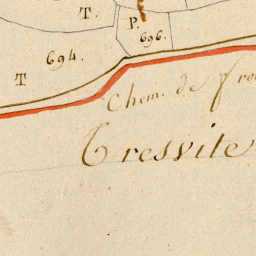 T.
P.
696.
694.
T
Chem. de Fro
Tresvile